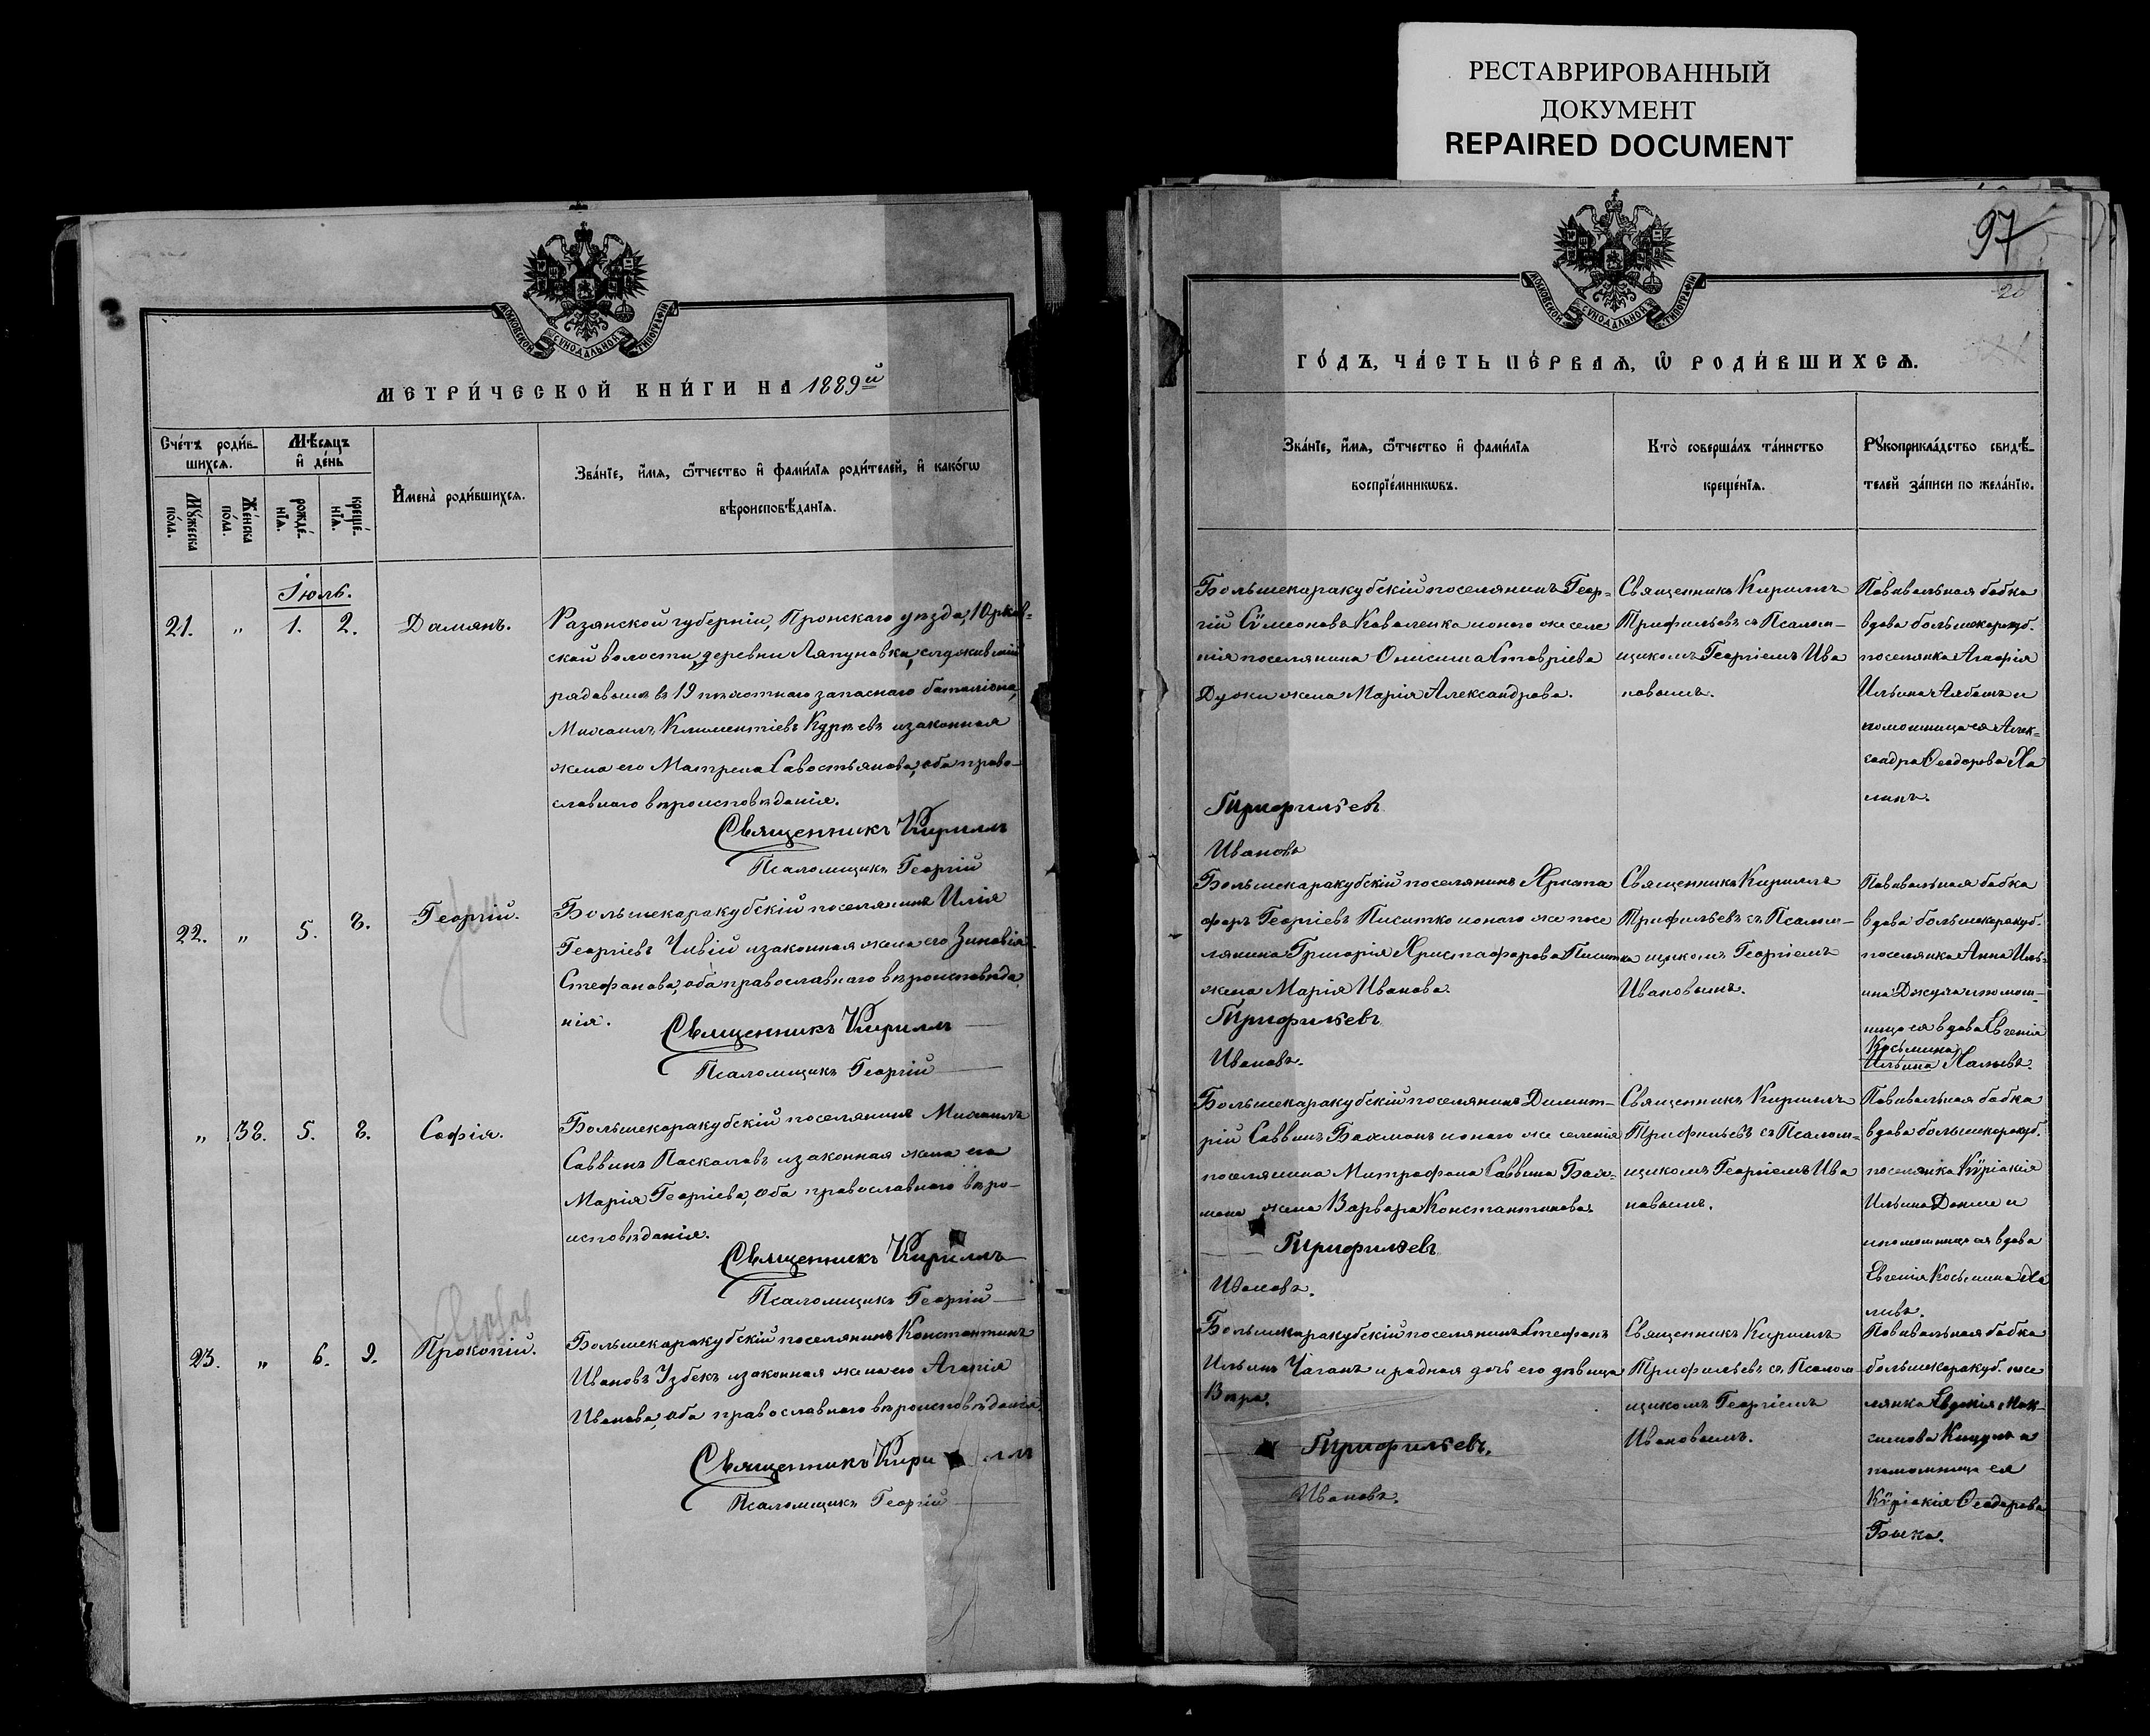 РЕСТАВРИРОВАННЫЙ
ДОКУМЕНТ
REPAIRED DOCUMENT
МОСКОВСКОЙ СѴНОДАЛЬНОЙ ТИПОГРАФІИ
МЕТРИ́ЧЕСКОЙ КНИ́ГИ НА 1889й
Сче́тъ роди́в-
шихсѧ.
Мѣ́сѧцъ
и҆ де́нь
Мꙋ́жеска
по́ла.
Же́нска
по́ла.
рожде́-
нїѧ.
креще́-
нїѧ.
И҆мена̀ роди́вшихсѧ.
Зва́нїе, и҆́мѧ, ѻ҆́тчество и҆ фами́лїѧ роди́телей, и҆ како́гѡ
вѣроисповѣ́данїѧ.
Іюль.
21. „ 1. 2. Дамянъ.
Разянской губерніи, Пронскаго уѣзда, Юрков-
ской волости, деревни Ляпуновка, служившій
рядовымъ въ 19 пѣхотнаго запаснаго баталіона,
Михаилъ Климентіевъ и законная
жена его Матрена Савостьянова, оба право-
славнаго вѣроисповѣданія.
Священникъ Кириллъ
Псаломщикъ Георгій
22. „ 5. 8. Георгій.
Большекаракубскій поселянинъ Илія
Георгіевъ Чивій и законная жена его Зиновія
Стефанова, оба православнаго вѣроисповѣда-
нія.
Священникъ Кириллъ
Псаломщикъ Георгій
„ 38. 5. 8. Софія.
Большекаракубскій поселянинъ Михаилъ
Саввинъ Паскаловъ и законная жена его
Марія Георгіева, оба православнаго вѣро-
исповѣданія.
Священникъ Кириллъ
Псаломщикъ Георгій
23. „ 6. 9. Прокопій.
Большекаракубскій поселянинъ Константинъ
Ивановъ Узбекъ и законная жена его Агапія
Иванова, оба православнаго вѣроисповѣданія.
Священникъ Кириллъ
Псаломщикъ Георгій
97
20
МОСКОВСКОЙ СѴНОДАЛЬНОЙ ТИПОГРАФІИ
ГО́ДЪ, ЧА́СТЬ ПЕ́РВАѦ, Ѽ РОДИ́ВШИХСѦ.
Зва́нїе, и҆́мѧ, ѻ҆́тчество и҆ фами́лїѧ
воспрїе́мникѡвъ.
Кто̀ соверша́лъ та́инство
креще́нїѧ.
Рꙋкоприкла́дство свидѣ́-
телей за́писи по жела́нїю.
Большекаракубскій поселянинъ Геор-
гій Сѵмеоновъ Коваленко и оного же селе
нія поселянина Онисима Ставріева
жена Марія Александрова.
Трифильевъ
Ивановъ
Священникъ Кириллъ
Трифильевъ съ Псалом-
щикомъ Георгіемъ Ива
новымъ.
Повивальная бабка
вдова большекаракуб.
поселянка Агафія
Ильина и
помощница ея Алек-
сандра Ѳеодорова Ха
линъ.
Большекаракубскій поселянинъ Христа
форъ Георгіевъ Писитко и оного же посе
лянина Григорія Христафорова Писитка
жена Марія Иванова.
Трифильевъ
Ивановъ.
Священникъ Кириллъ
Трифильевъ съ Псалом-
щикомъ Георгіемъ
Ивановымъ.
Повивальная бабка
вдова большекаракуб.
поселянка Анна Иль-
ина Джума и помощ-
ница ея вдова Евгенія
Косьмина
Ильина Халыевъ.
Большекаракубскій поселянинъ Димит-
рій Саввинъ Бахманъ и оного же селенія
поселянина Митрофана Саввина Бах-
мана жена Варвара Константинова.
Трифильевъ
Ивановъ.
Священникъ Кириллъ
Трифильевъ съ Псалом-
щикомъ Георгіемъ Ива
новымъ.
Повивальная бабка
вдова большекаракуб.
поселянка Кѵріакія
Ильина и
помощница ея вдова
Евгенія Косьмина Ха
ливъ.
Большекаракубскій поселянинъ Стефанъ
Ильинъ Чаганъ и родная дочь его дѣвица
Вѣра.
Трифильевъ.
Ивановъ.
Священникъ Кириллъ
Трифильевъ съ Псалом-
щикомъ Георгіемъ
Ивановымъ.
Повивальная бабка
большекаракуб. посе
лянка Евдокія Мак-
симова и
помощница ея
Кѵріакія Ѳеодорова
Быка.